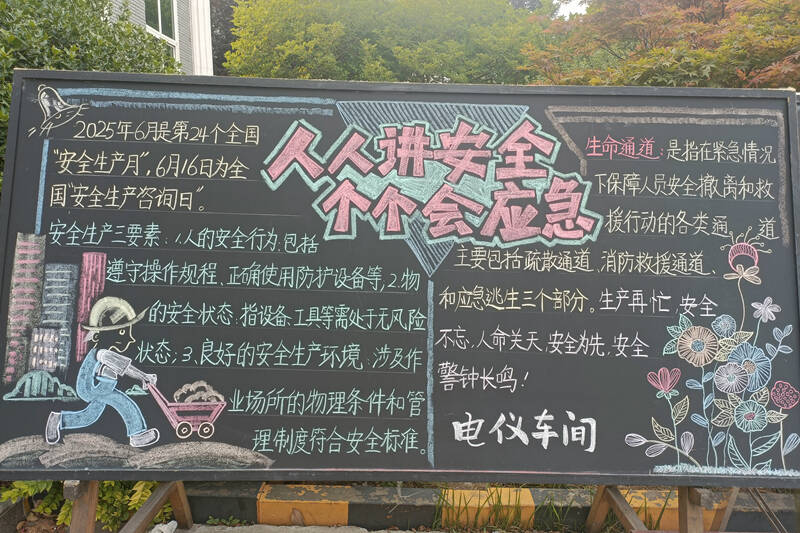 人人讲安全
个个会应急
2025年6月是第24个全国
"安全生产月",6月16日为全
国"安全生产咨询日"。
安全生产三要素:1.人的安全行为:包括
遵守操作规程、正确使用防护设备等;2.物
的安全状态:指设备、工具等需处于无风险
状态;3.良好的安全生产环境:涉及作
业场所的物理条件和管
理制度符合安全标准。
生命通道:是指在紧急情况
下保障人员安全撤离和救
援行动的各类通道
主要包括疏散通道、消防救援通道、
和应急逃生三个部分。生产再忙,安全
不忘,人命关天,安全为先,安全
警钟长鸣!
电仪车间